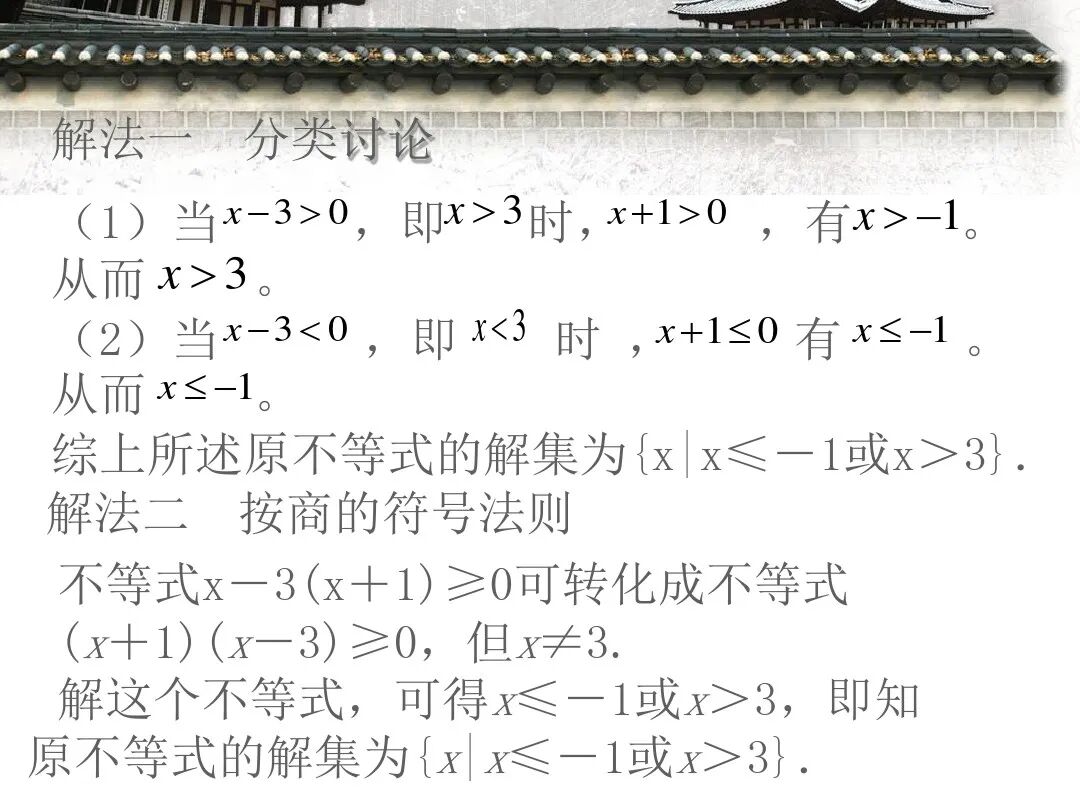 解法一　分类讨论
（1）当x－3>0，即x>3时，x+1>0 ，有x>－1。
从而 x>3。
（2）当x－3<0，即 x<3 时 ，x+1≤0 有 x≤－1 。
从而 x≤－1。
综上所述原不等式的解集为{x|x≤－1或x＞3}.
解法二　按商的符号法则
不等式x－3(x＋1)≥0可转化成不等式
(x＋1)(x－3)≥0，但x≠3.
解这个不等式，可得x≤－1或x＞3，即知
原不等式的解集为{x|x≤－1或x＞3}.